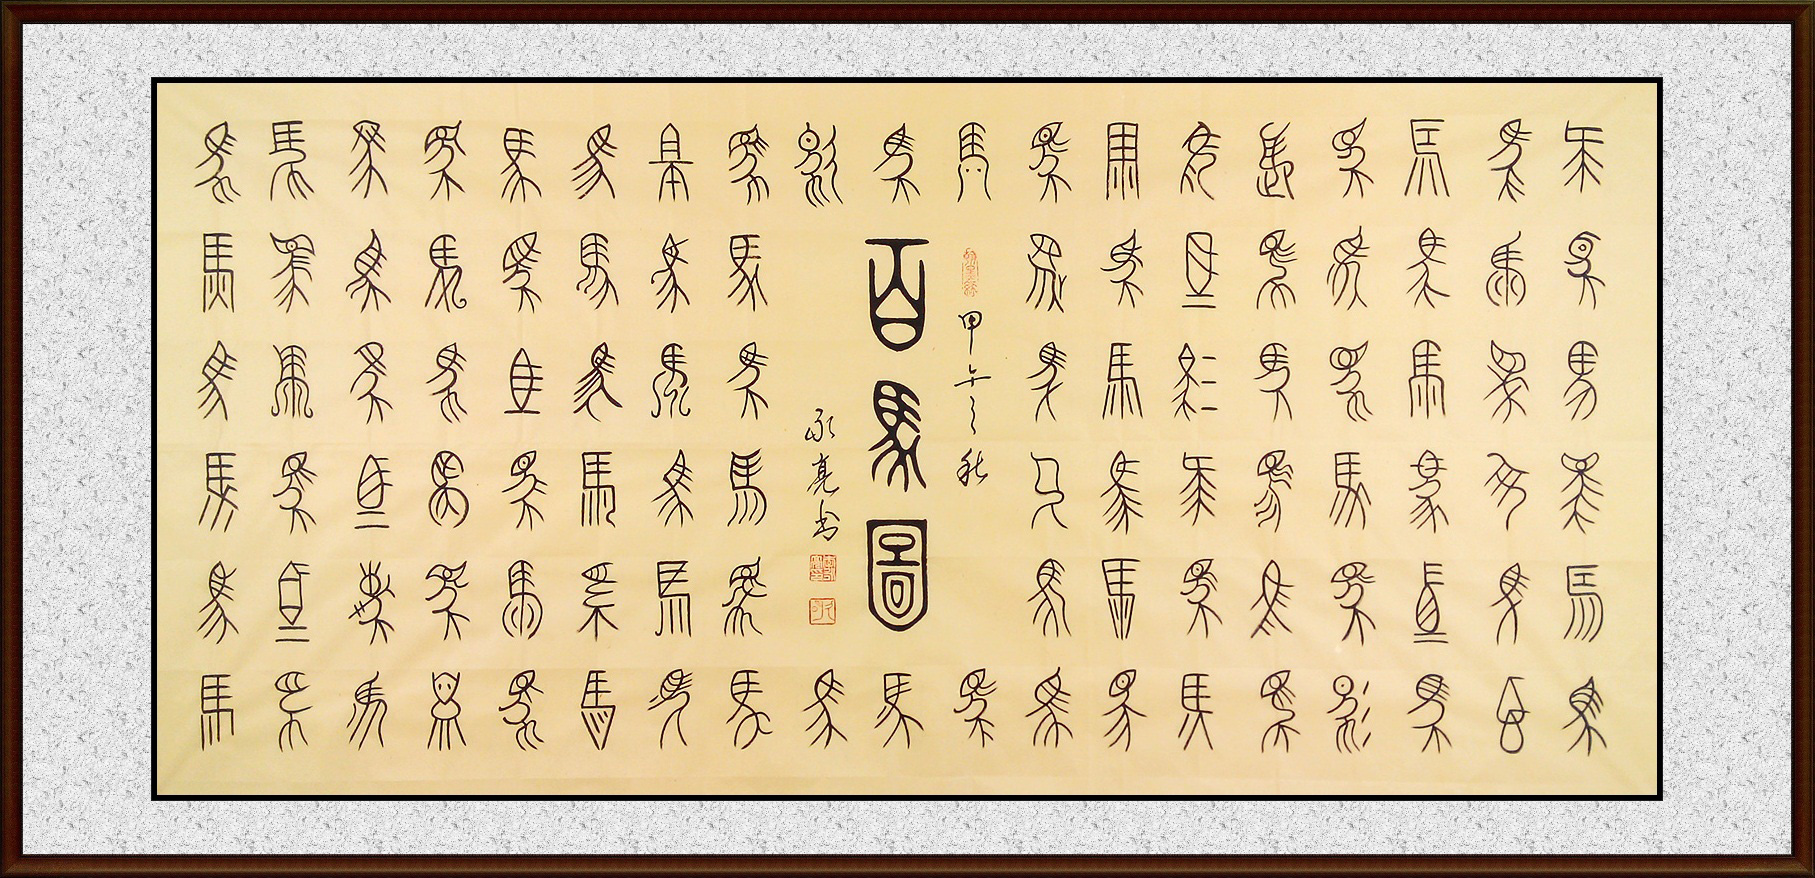 馬馬馬馬馬馬
馬馬馬馬馬馬
馬馬馬馬馬馬
馬馬馬馬馬馬
馬馬馬馬馬馬
馬馬馬馬馬馬
馬馬馬馬馬馬
馬馬馬馬馬馬
馬
甲午之秋
馬
馬
百馬圖
馬
馬
永亮书
馬
馬馬馬馬馬馬
馬馬馬馬馬馬
馬馬馬馬馬馬
馬馬馬馬馬馬
馬馬馬馬馬馬
馬馬馬馬馬馬
馬馬馬馬馬馬
馬馬馬馬馬馬